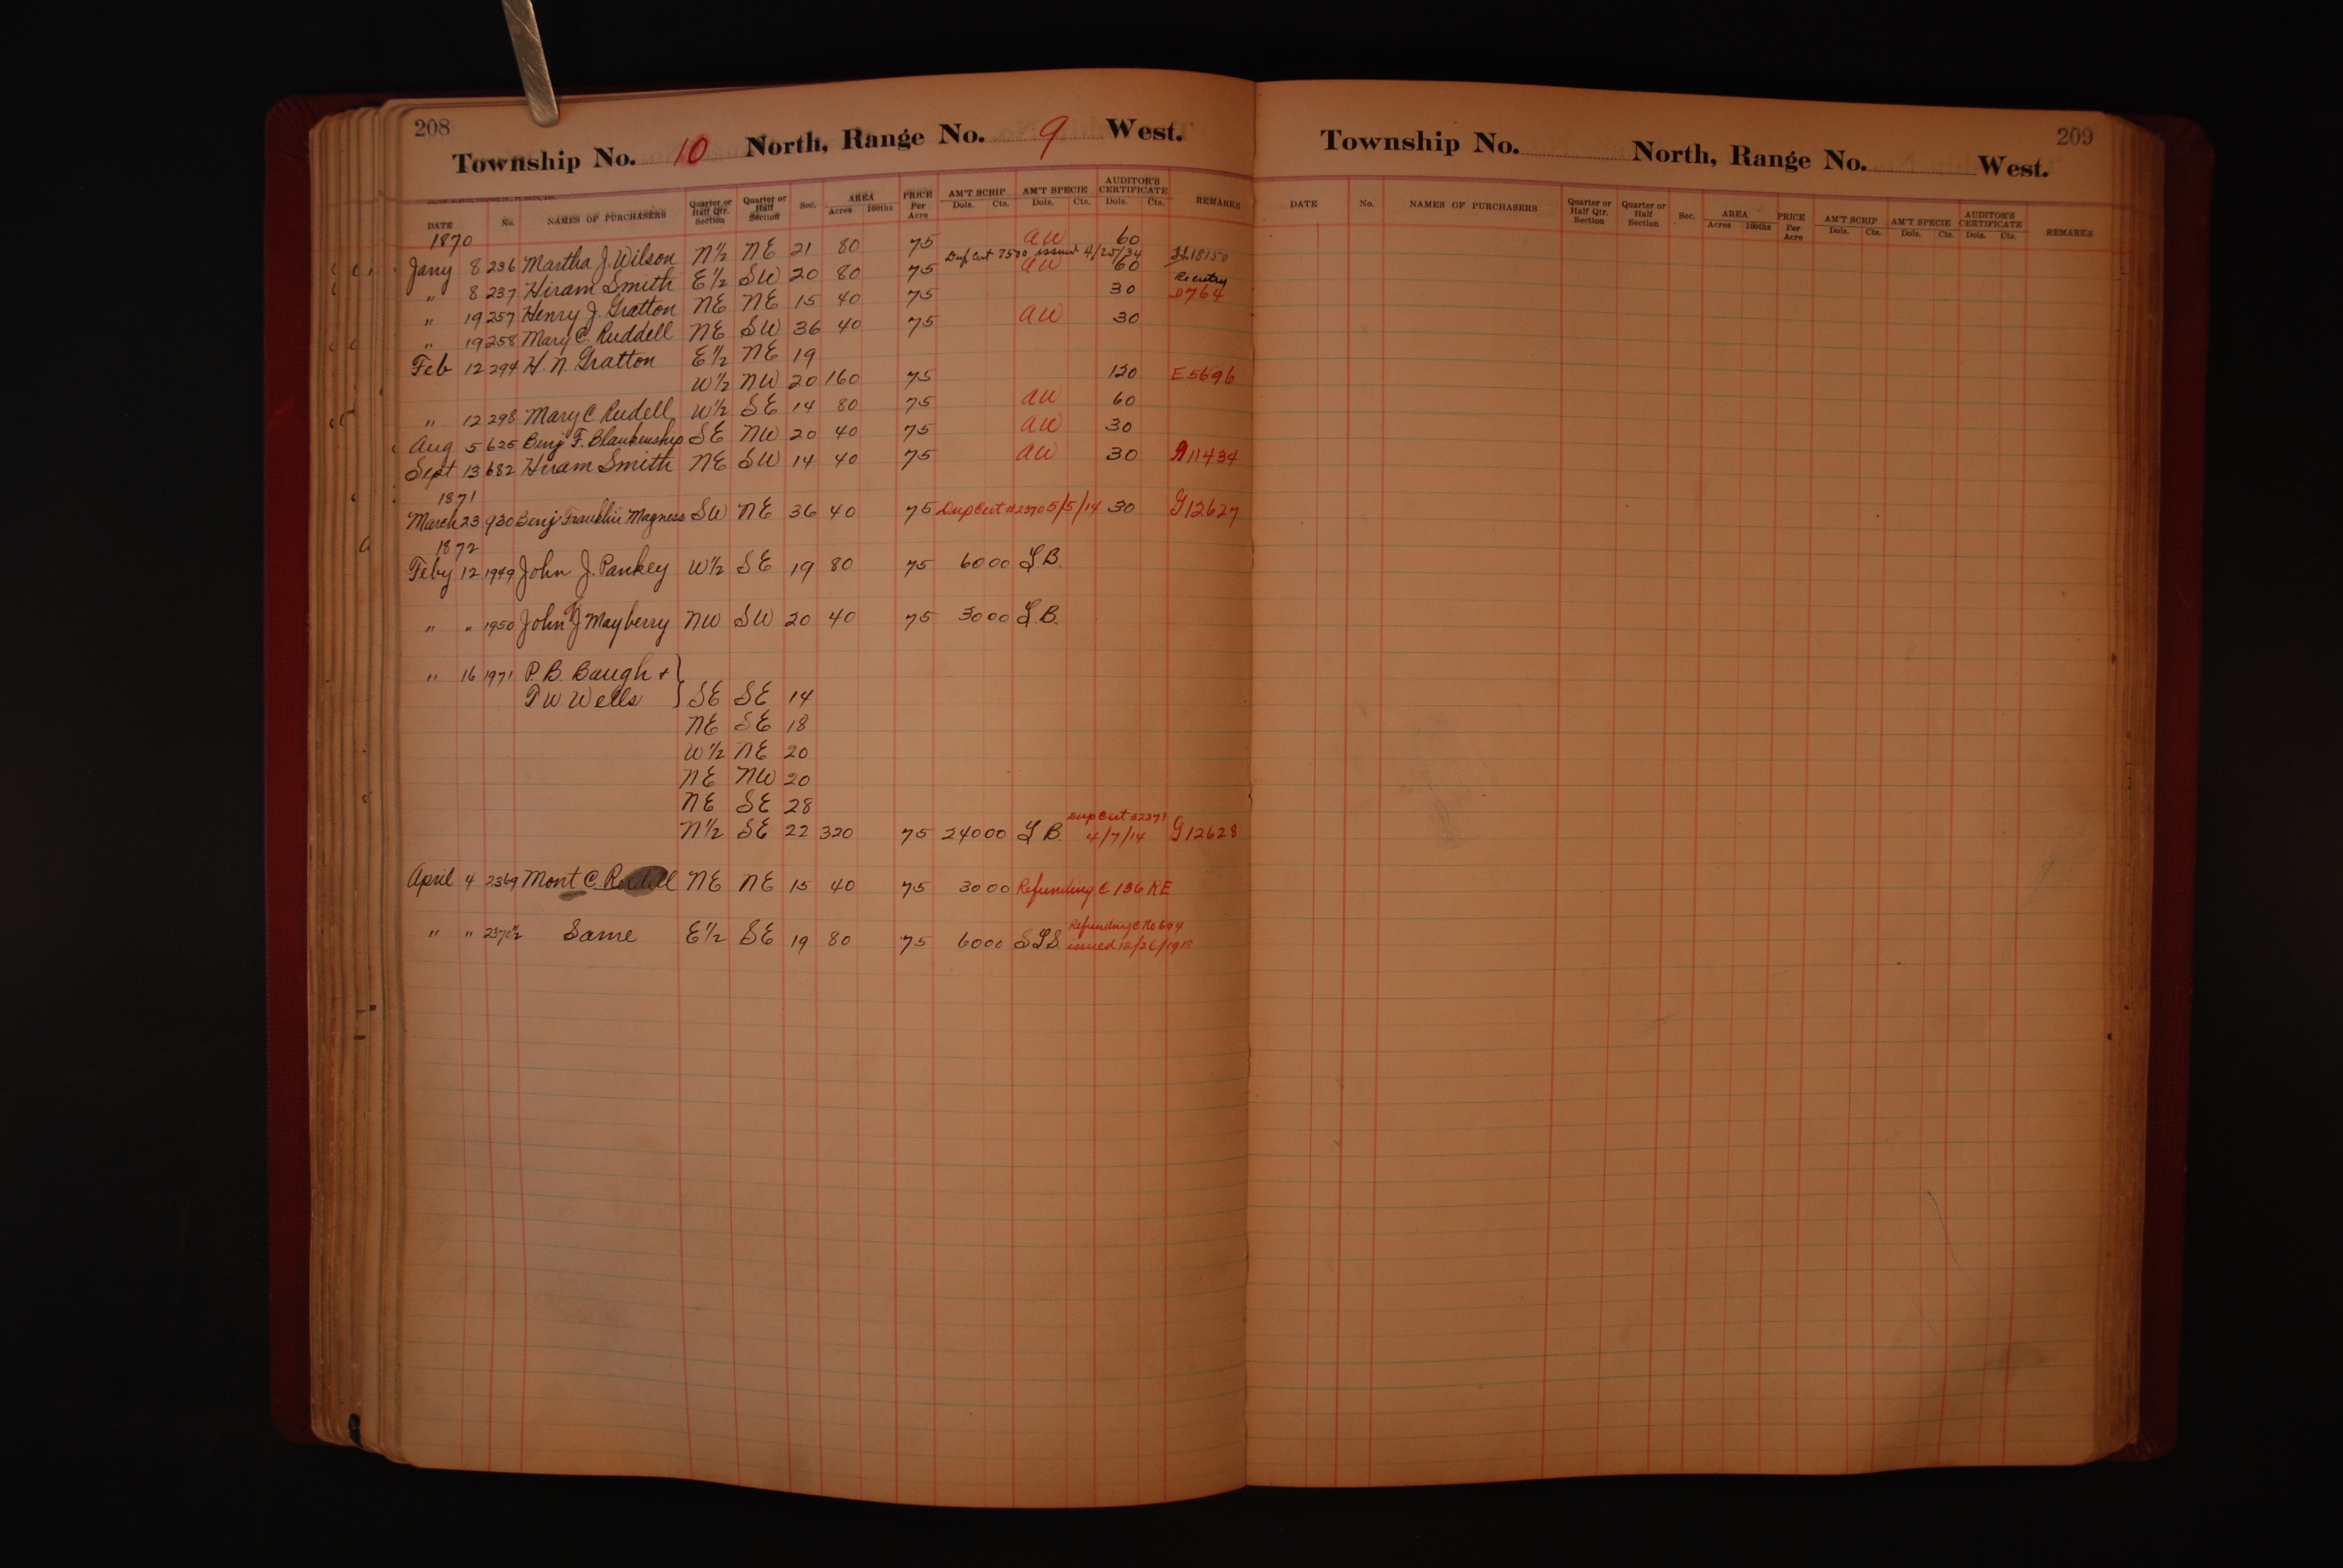 208
Township No. 10 North, Range No. 9 West.
DATE No. NAMES OF PURCHASERS Quarter or Half Qtr. Section Quarter or Half Section Sec. AREA Acres 100ths PRICE Per Acre AM'T SCRIP Dols. Cts. AM'T SPECIE Dols. Cts. AUDITOR'S CERTIFICATE Dols. Cts. REMARKS
1870
Jany 8 236 Martha J. Wilson N½ NE 21 80 75 AW 60
Dup Cert 7500 issued 4/25/34 H18150
" 8 237 Hiram Smith E½ SW 20 80 75 AW 60 Re entry
" 19 257 Henry J. Gratton NE NE 15 40 75 30 D764
" 19 258 Mary C. Ruddell NE SW 36 40 75 AW 30
Feb 12 294 H. N. Gratton E½ NE 19
W½ NW 20 160 75 120 E5696
" 12 298 Mary C Rudell W½ SE 14 80 75 AW 60
Aug 5 625 Benj F. Blankenship SE NW 20 40 75 AW 30
Sept 13 682 Hiram Smith NE SW 14 40 75 AW 30 A11434
1871
March 23 930 Benj Franklin Magness SW NE 36 40 75 Dup Cert #2370 5/5/14 30 G12627
1872
Feby 12 1949 John J. Pankey W½ SE 19 80 75 6000 L.B.
" " 1950 John J Mayberry NW SW 20 40 75 3000 L.B.
" 16 1971 P. B. Baugh + }
P W Wells } SE SE 14
NE SE 18
W½ NE 20
NE NW 20
NE SE 28
N½ SE 22 320 75 24000 L B. Dup Cert #2371 4/7/14 G12628
April 4 2369 Mont C. Rudell NE NE 15 40 75 3000 Refunding C 136 RE
" " 2370½ Same E½ SE 19 80 75 6000 SLS Refunding C No 694
issued 10/26/1918
209
Township No. North, Range No. West.
DATE No. NAMES OF PURCHASERS Quarter or Half Qtr. Section Quarter or Half Section Sec. AREA Acres 100ths PRICE Per Acre AM'T SCRIP Dols. Cts. AM'T SPECIE Dols. Cts. AUDITOR'S CERTIFICATE Dols. Cts. REMARKS